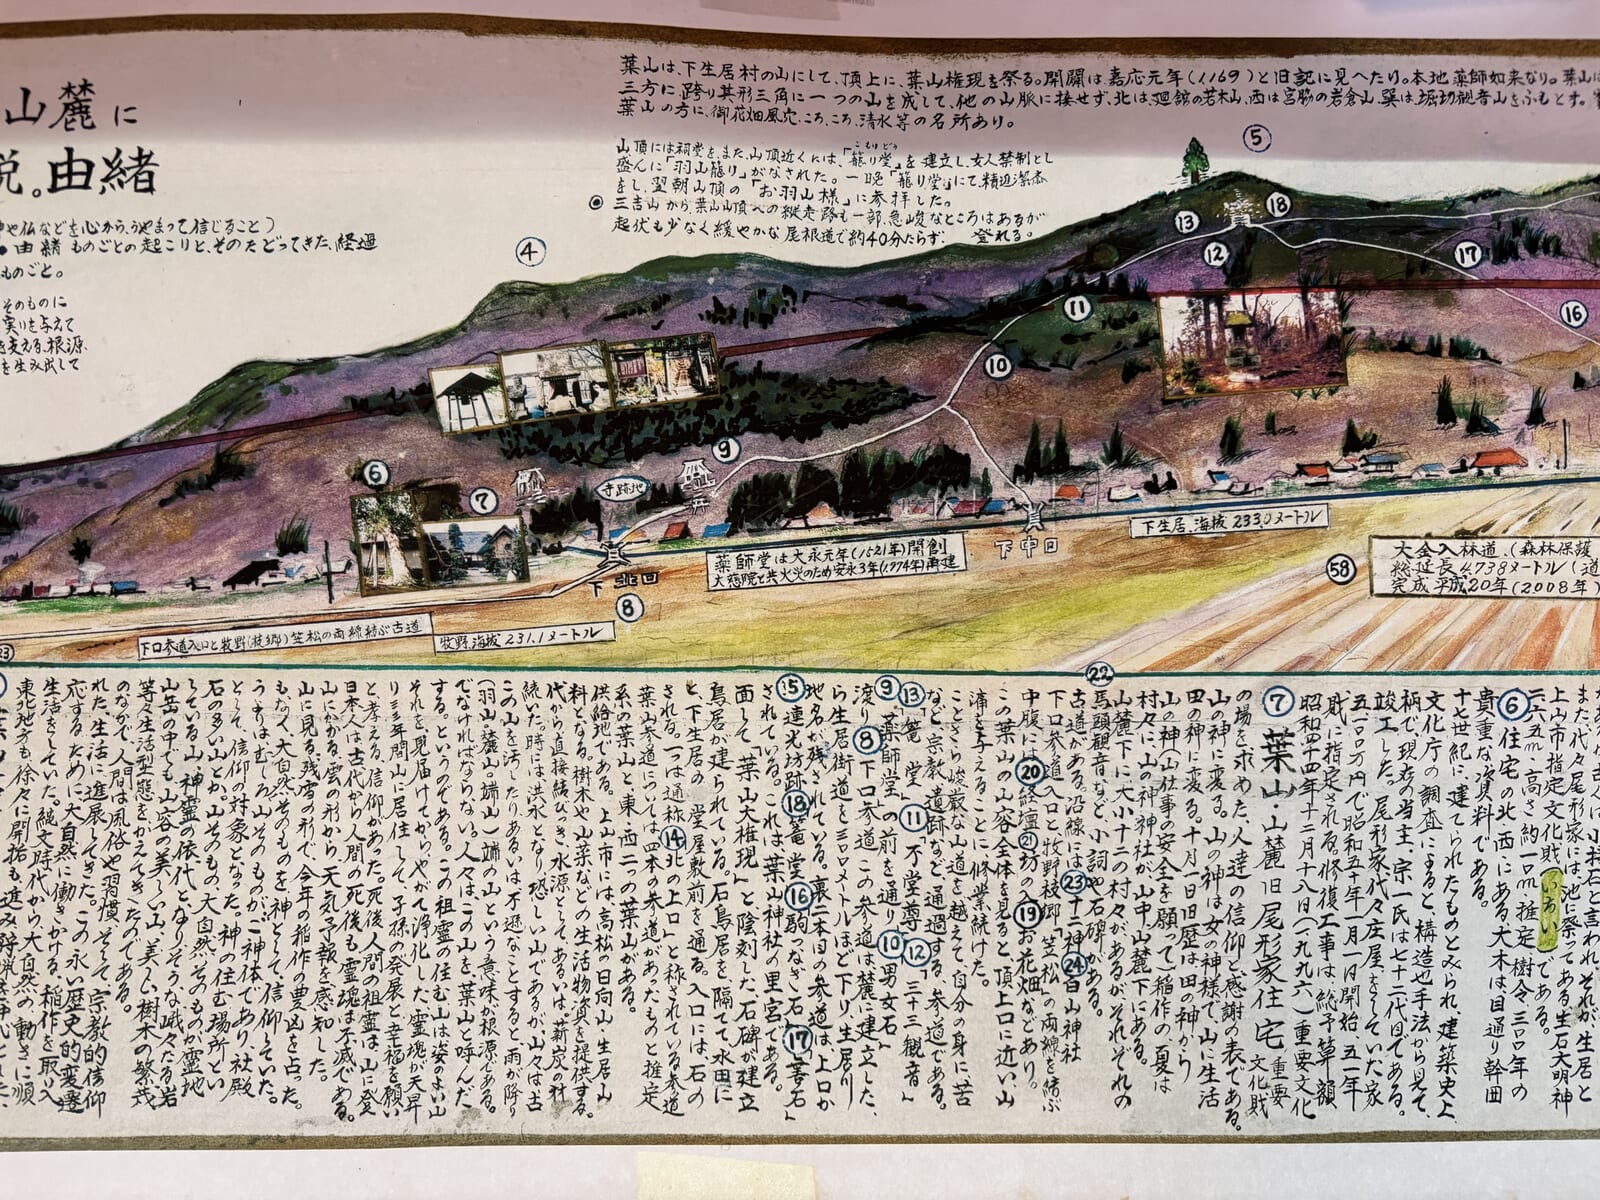 山麓に
説。由緒
や仏などを心から、うやまって信じること)
●由緒 ものごとの起こりと、そのたどってきた、経過
ものごと。
そのものに
実りを与えて
を支える、根源、
を生み出して
葉山は、下生居村の山にして、頂上に、葉山権現を祭る。開闢は嘉応元年(1169)と旧記に見へたり。本地薬師如来なり。葉山は
三方に、跨り其形三角に一つの山を成して、他の山脈に接せず、北は、廻舘の若木山、西は宮脇の岩倉山、巽は、堀切観音山をふもとす。
葉山の方に、御花畑風穴、ころ、ころ、清水等の名所あり。
山頂には祠堂を、また、山頂近くには、「籠り堂」を建立し、女人禁制とし
こもりどう
盛んに「羽山籠り」がなされた。一晩「籠り堂」にて、精進潔斎
をし、翌朝山頂の「お羽山様」に参拝した。
◉三吉山から葉山山頂への縦走路も一部、急峻なところはあるが
起伏も少なく緩やかな尾根道で約40分たらず、登れる。
④
⑤
⑬
⑱
⑫
⑰
⑪
⑯
⑩
⑨
⑥
⑦
寺跡地
下北口
⑧
下中口
薬師堂は大永元年(1521年)開創
大慈院と共火災のため安永3年(1774年)再建
下生居、海抜233.0メートル
58
大金入林道、(森林保護
総延長4,738メートル(道
完成平成20年(2008年)
下口参道入口と牧野(枝郷)笠松の両線結ぶ古道
牧野、海抜231.1メートル
23
22
また、代々尾形家には、池に祭ってある生石大明神
上山市指定文化財、いちい、である。
二六・五m、高さ約一〇m推定、樹令、三〇〇年の
⑥住宅の北西にある大木は目通り幹囲
貴重な資料である。
十七世紀に、建てられたものとみられ、建築史上、
文化庁の調査によると、構造や手法から見て、
柄で、現存の当主、宗一氏は七十二代目である。
竣工した。尾形家代々庄屋をしていた家
財に指定される。修復工事は、総予算額
昭和四十四年十二月十八日(一九六九)重要文化
⑦葉山・山麓旧尾形家住宅 重要文化財
の場を求めた、人達の信仰と感謝の表である。
山の神に変る。山の神は女の神様で、山に生活
田の神に変る。十月一日旧歴は田の神から
山の神山仕事の安全を願って)稲作の、夏は
村々に、山の神の神社が、山中山麓下にある。
山麓下に大小十二の村々があるがそれぞれの
馬頭観音など、小詞や石碑がある。
古道がある。沿線には㉓十二神㉔白山神社
下口参道入口と、牧野枝郷「笠松」の両線を結ぶ
中腹には⑳経壇㉑坊の倉⑲お花畑などあり、
この葉山の山容全体を見ると、頂上口に近い山
渧を与えることに修業続けた。
ことさら峻厳な山道を越えて、自分の身に苦
など宗教、遺跡など通過する、参道である。
⑬篭堂⑪不動堂尊⑩⑫三十三観音」
⑨薬師堂の前を通り⑩男女石」
⑧下口参道この参道は麓に建立した、
ら生居街道を三〇〇メートルほど下り、生居川
地名が残されている。裏二本目の参道は、上口か
⑮蓮光坊跡⑱篭堂⑯駒つなぎ石」⑰善石」
されている。これは、葉山神社の里宮である。
面して「葉山大権現」と陰刻した石碑が建立
鳥居が建られている。石鳥居を隔てて水田に
と、下生居の堂屋敷前を通る。入口には、石の
される。一つは通称⑭北の上口」と称されている参道
葉山参道については四本の参道があったものと推定
系の葉山と、東・西二つの葉山がある。
供給地である。上山市には、高松の日向山、生居山
料となる。樹木や山菜などの生活物資を提供する。
代から直接結びつき、水源として、あるいは、薪炭の材
続いた時には洪水となり恐しい山であるが、山々は古
この山を汚したりあるいは不遜なことすると、雨が降り
(羽山、麓山。端山)端の山という意味が根源である。
でなければならない。人々はこの山を、葉山と呼んだ。
する。というのである。この祖霊の住む山は姿のよい山
それを見届けてからやがて浄化した霊魂が天昇
り三三年間山に居住して、子孫の発展と幸福を願い
と、考える、信仰があった。死後人間の祖霊は、山に登
日本人は古代から人間の死後も霊魂は不滅である。
山に見る、残雪の形で、今年の稲作の豊凶を占った。
山にかかる、雲の形から、天気予報を感知した。
もなく、大自然そのものを神として、信仰していた。
うよりはむしろ山そのものがご神体であり、社殿
として、信仰の対象となった。神の住む場所とい
石の多い、山とか、山そのもの、大自然そのものが霊地
している山、神霊の依代と、なりそうな峨々たる岩
山岳の中でも、山容の美しい山、美しい樹木の繁茂
等々生活型態をかえてきたのである。
のなかで、人間は風俗や習慣、そして宗教的信仰
れた、生活に進展してきた。この永い歴史的変遷
応するために大自然に働きかける、稲作を取り入
生活をしていた。縄文時代から大自然の動きに順
東北地方も徐々に開拓も進み狩猟